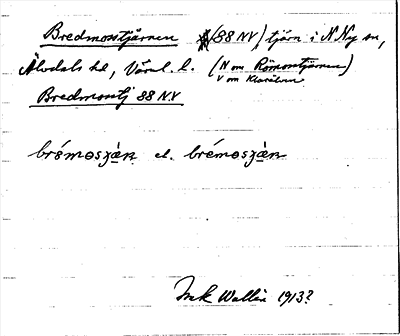 Bredmosstjärnen (88 NV) tjärn i N Ny sn,
Älvdals hd, Värml. l. (N om Römosstjärnen)
V om Klarälven
Bredmosstj 88 NV
brémosʒàn el. brémosʒàn
Ink Wallin 1913?